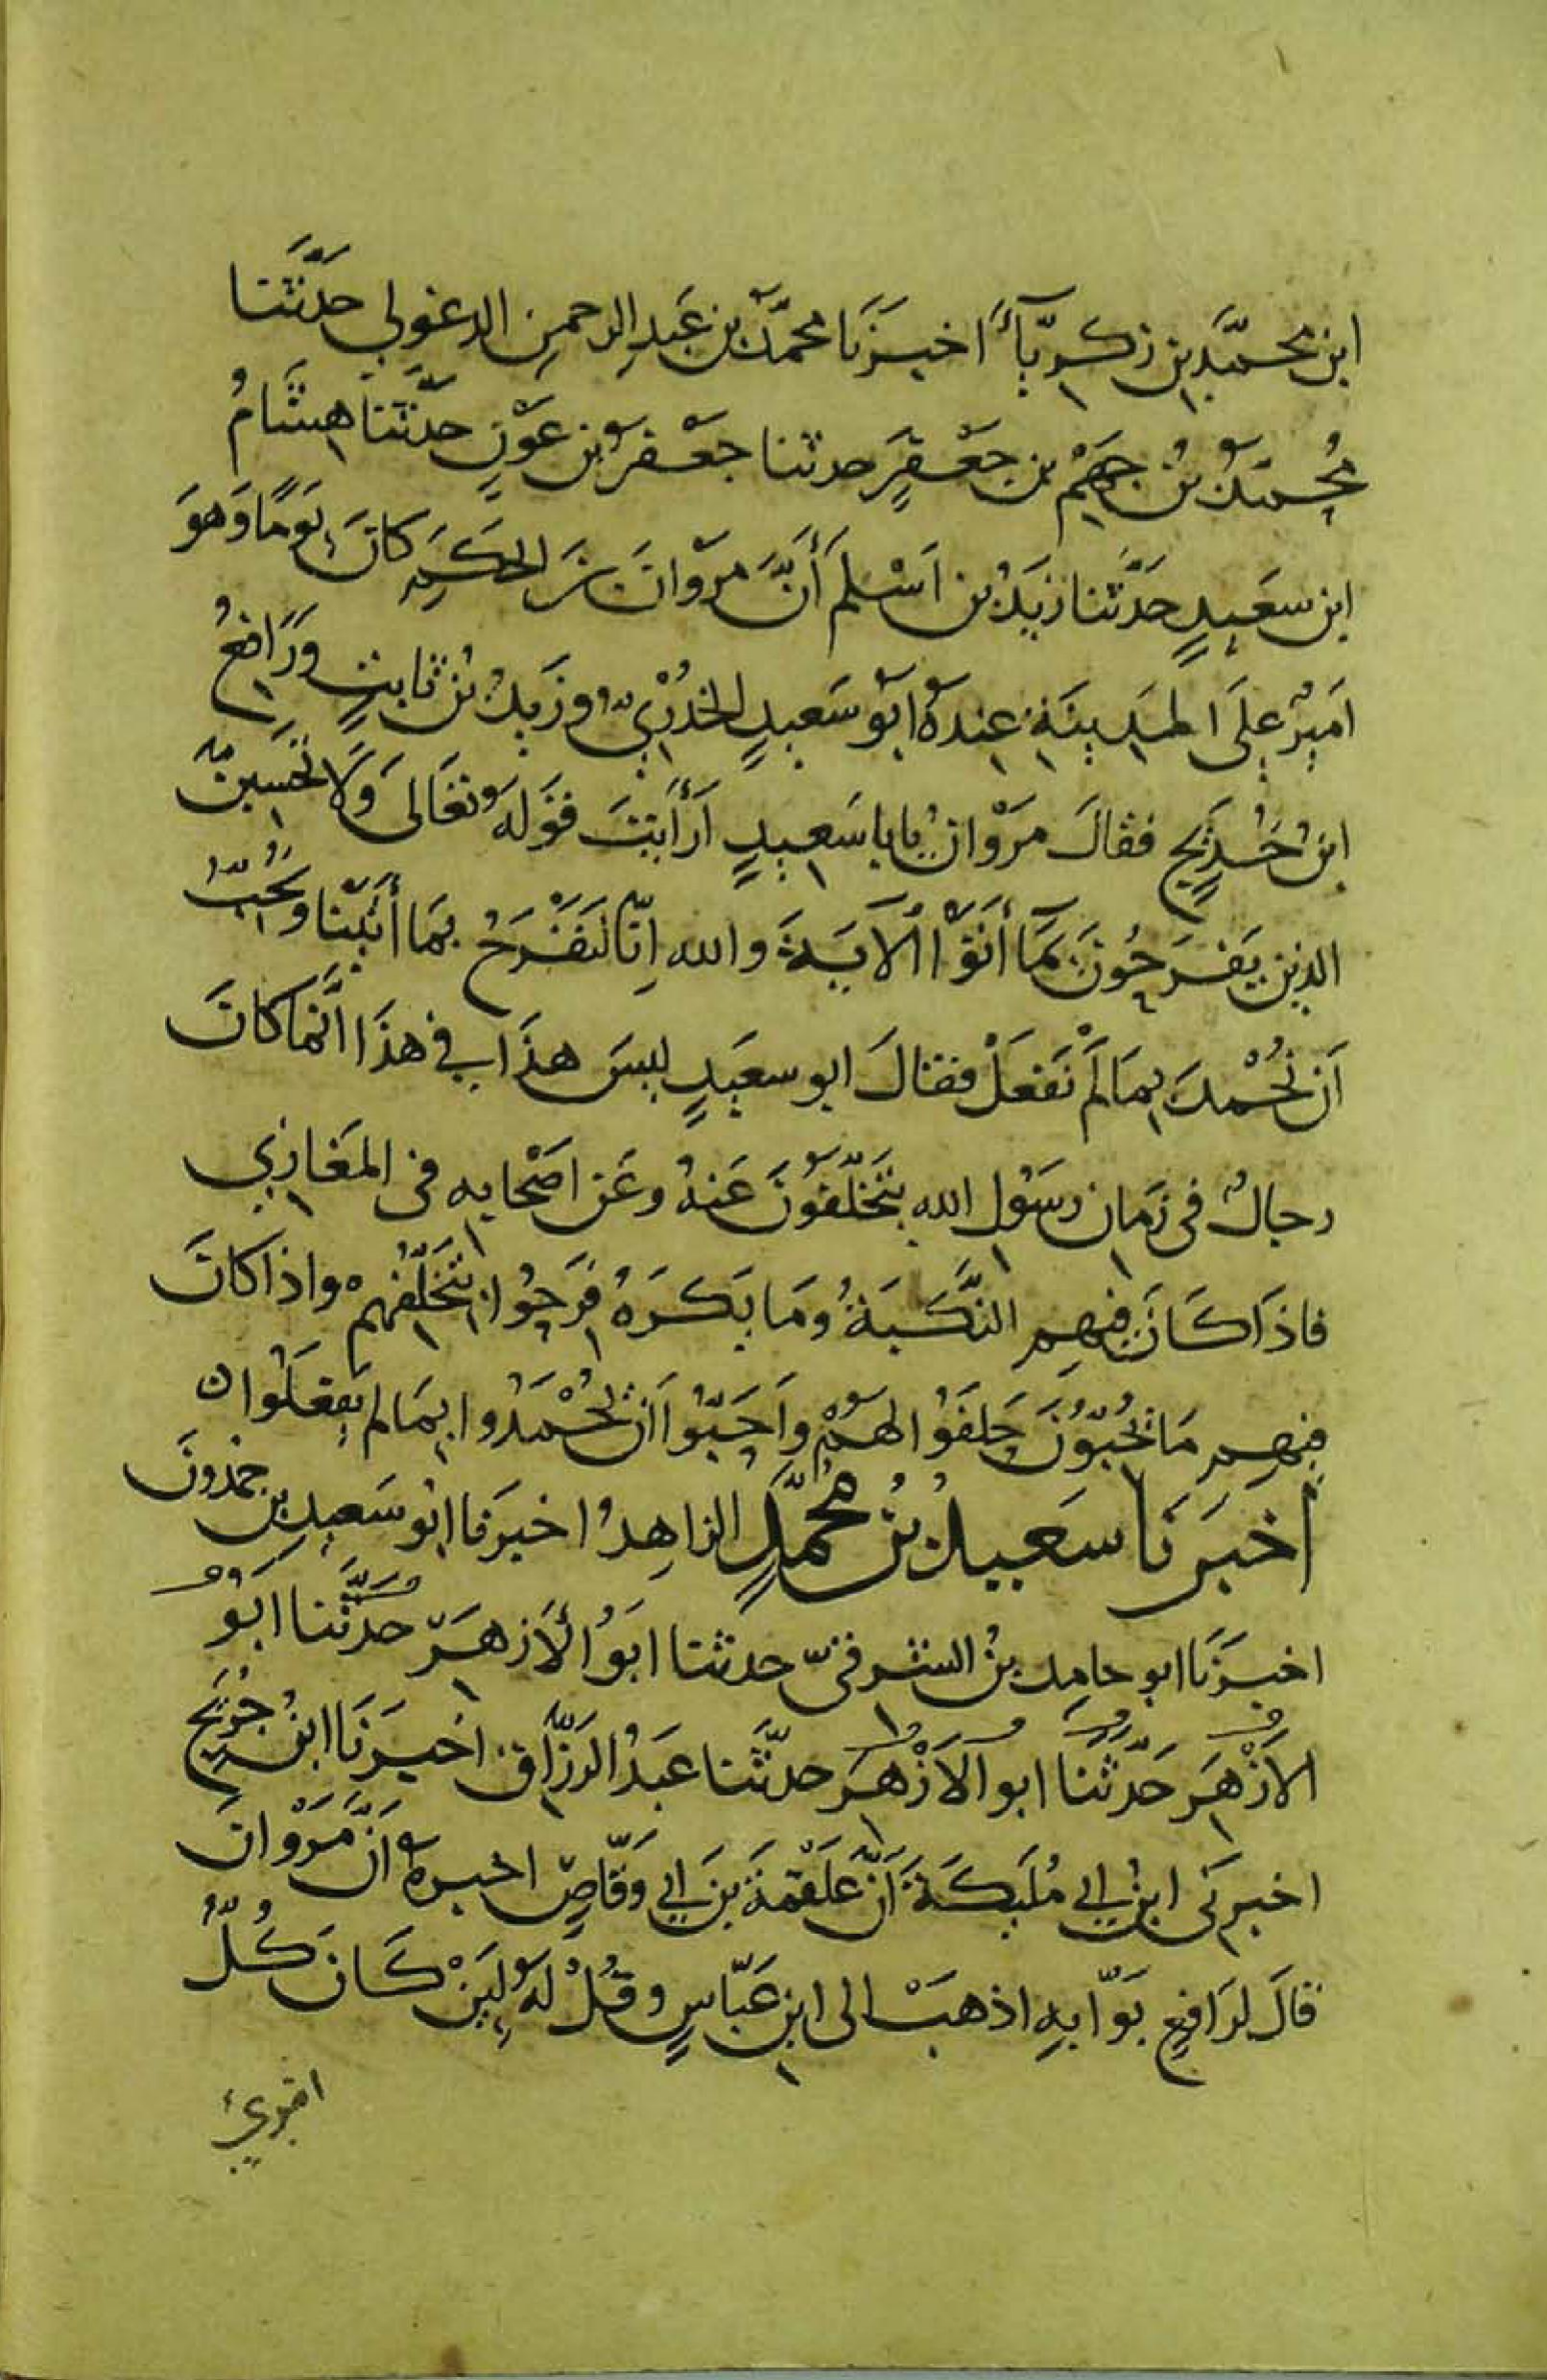 ابن محمَّد بن زكريّآءَ اخبرَنَا محمّدُ بن عَبدِ الرحمنِ الدغولي حدَّثَنا
مُحمّدُ بنُ جهْمِ بنِ جَعْفرٍ حدثنا جَعْفرُ بن عَوْنٍ حدّثنا هِشَامُ
ابن سعَيدٍ حَدَّثنا زيَدُ بن اَسْلمَ أَنَّ مَروْانَ بنَ الحكَمِ كانَ يَومًا وَهوَ
اَمِيرٌ علَى المدَينَةِ عِندهُ ابَوُ سَعيدٍ الخُدْرِيّ وزَيدُ بنُ ثابتٍ ورَافعُ
ابنُ خَديِجٍ فقالَ مَرْوانُ يابا سَعِيدٍ اَرأَيتَ قوَلهُ تعَالى وَلَا تحَسبنّ
الذين يَفرَحُونَ بمَآ أتَوْا اْلآيَةَ والله اِنّا لنَفْرَحُ بمَا أتَيْنا ونُحِبّ
اَن نُحْمدَ بِمَا لَمْ نَفعَلْ فقالَ ابو سعَيدٍ ليسَ هذَا في هذَا انّما كانَ
رجالٌ في زمَان رسَوُل الله يتَخَلَّفوُنَ عَنهُ وعَن اصْحابِه فى المَغازِي
فاذَا كَانَ فيهِم النَّكبَةُ ومَا يَكرَهُ فَرَحِوُا بتَخَلُّفِهم واذا كانَ
فيهِم مَا يُحبّوُنَ حَلفَوُا لهُمْ واَحَبّوُا اَن يُحْمَدُوا بِمَا لم يَفعَلوُا ه
اَخبرَنا سَعيدُ بنُ مُحمّدٍ الزاهِدُ اخبرَنا ابوُ سَعيدِ بن حمْدونَ
اخبرَنَا ابو حامِد بنُ الشرقىّ حدثنا ابَوُ الأَزهَرِ حَدَّثنا ابَوُ
الاَزْهَرِ حَدّثنَا ابو الاَزْهَرِ حدّثنا عَبدُ الرزّاق اَخبرَنَا ابنُ جُريَجٍ
اخبرنَى ابنُ ابي مُلَيكَةَ اَنَّ عَلْقمَةَ بنَ ابي وَقّاصٍ اخبرهُ اَنَّ مَرْوانَ
قالَ لرَافِعٍ بَوّابهِ اذهبَ الى ابنِ عَبّاسٍ وقُلْ لهَ لئِنْ كَانَ كُلُّ
امرئ